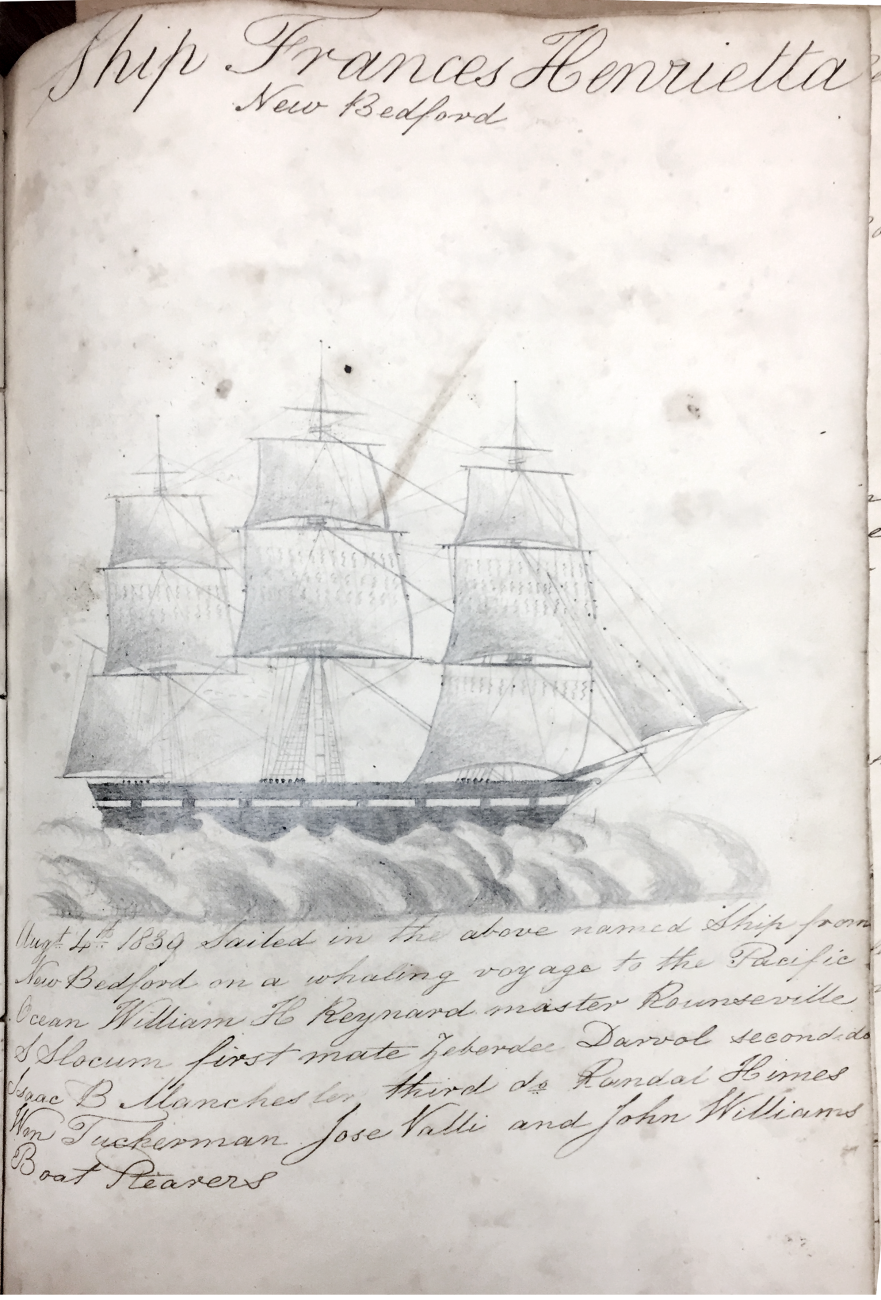 Ship Frances Henrietta
New Bedford
Augt 4th 1839 Sailed in the above named Ship from
New Bedford on a whaling voyage to the Pacific
Ocean William H Reynard master Rounseville
S Slocum first mate Zeberdee Darvol second do
Isaac B Manchester third do Randal Himes
Wm Tuckerman Jose Valli and John Williams
Boat Stearers